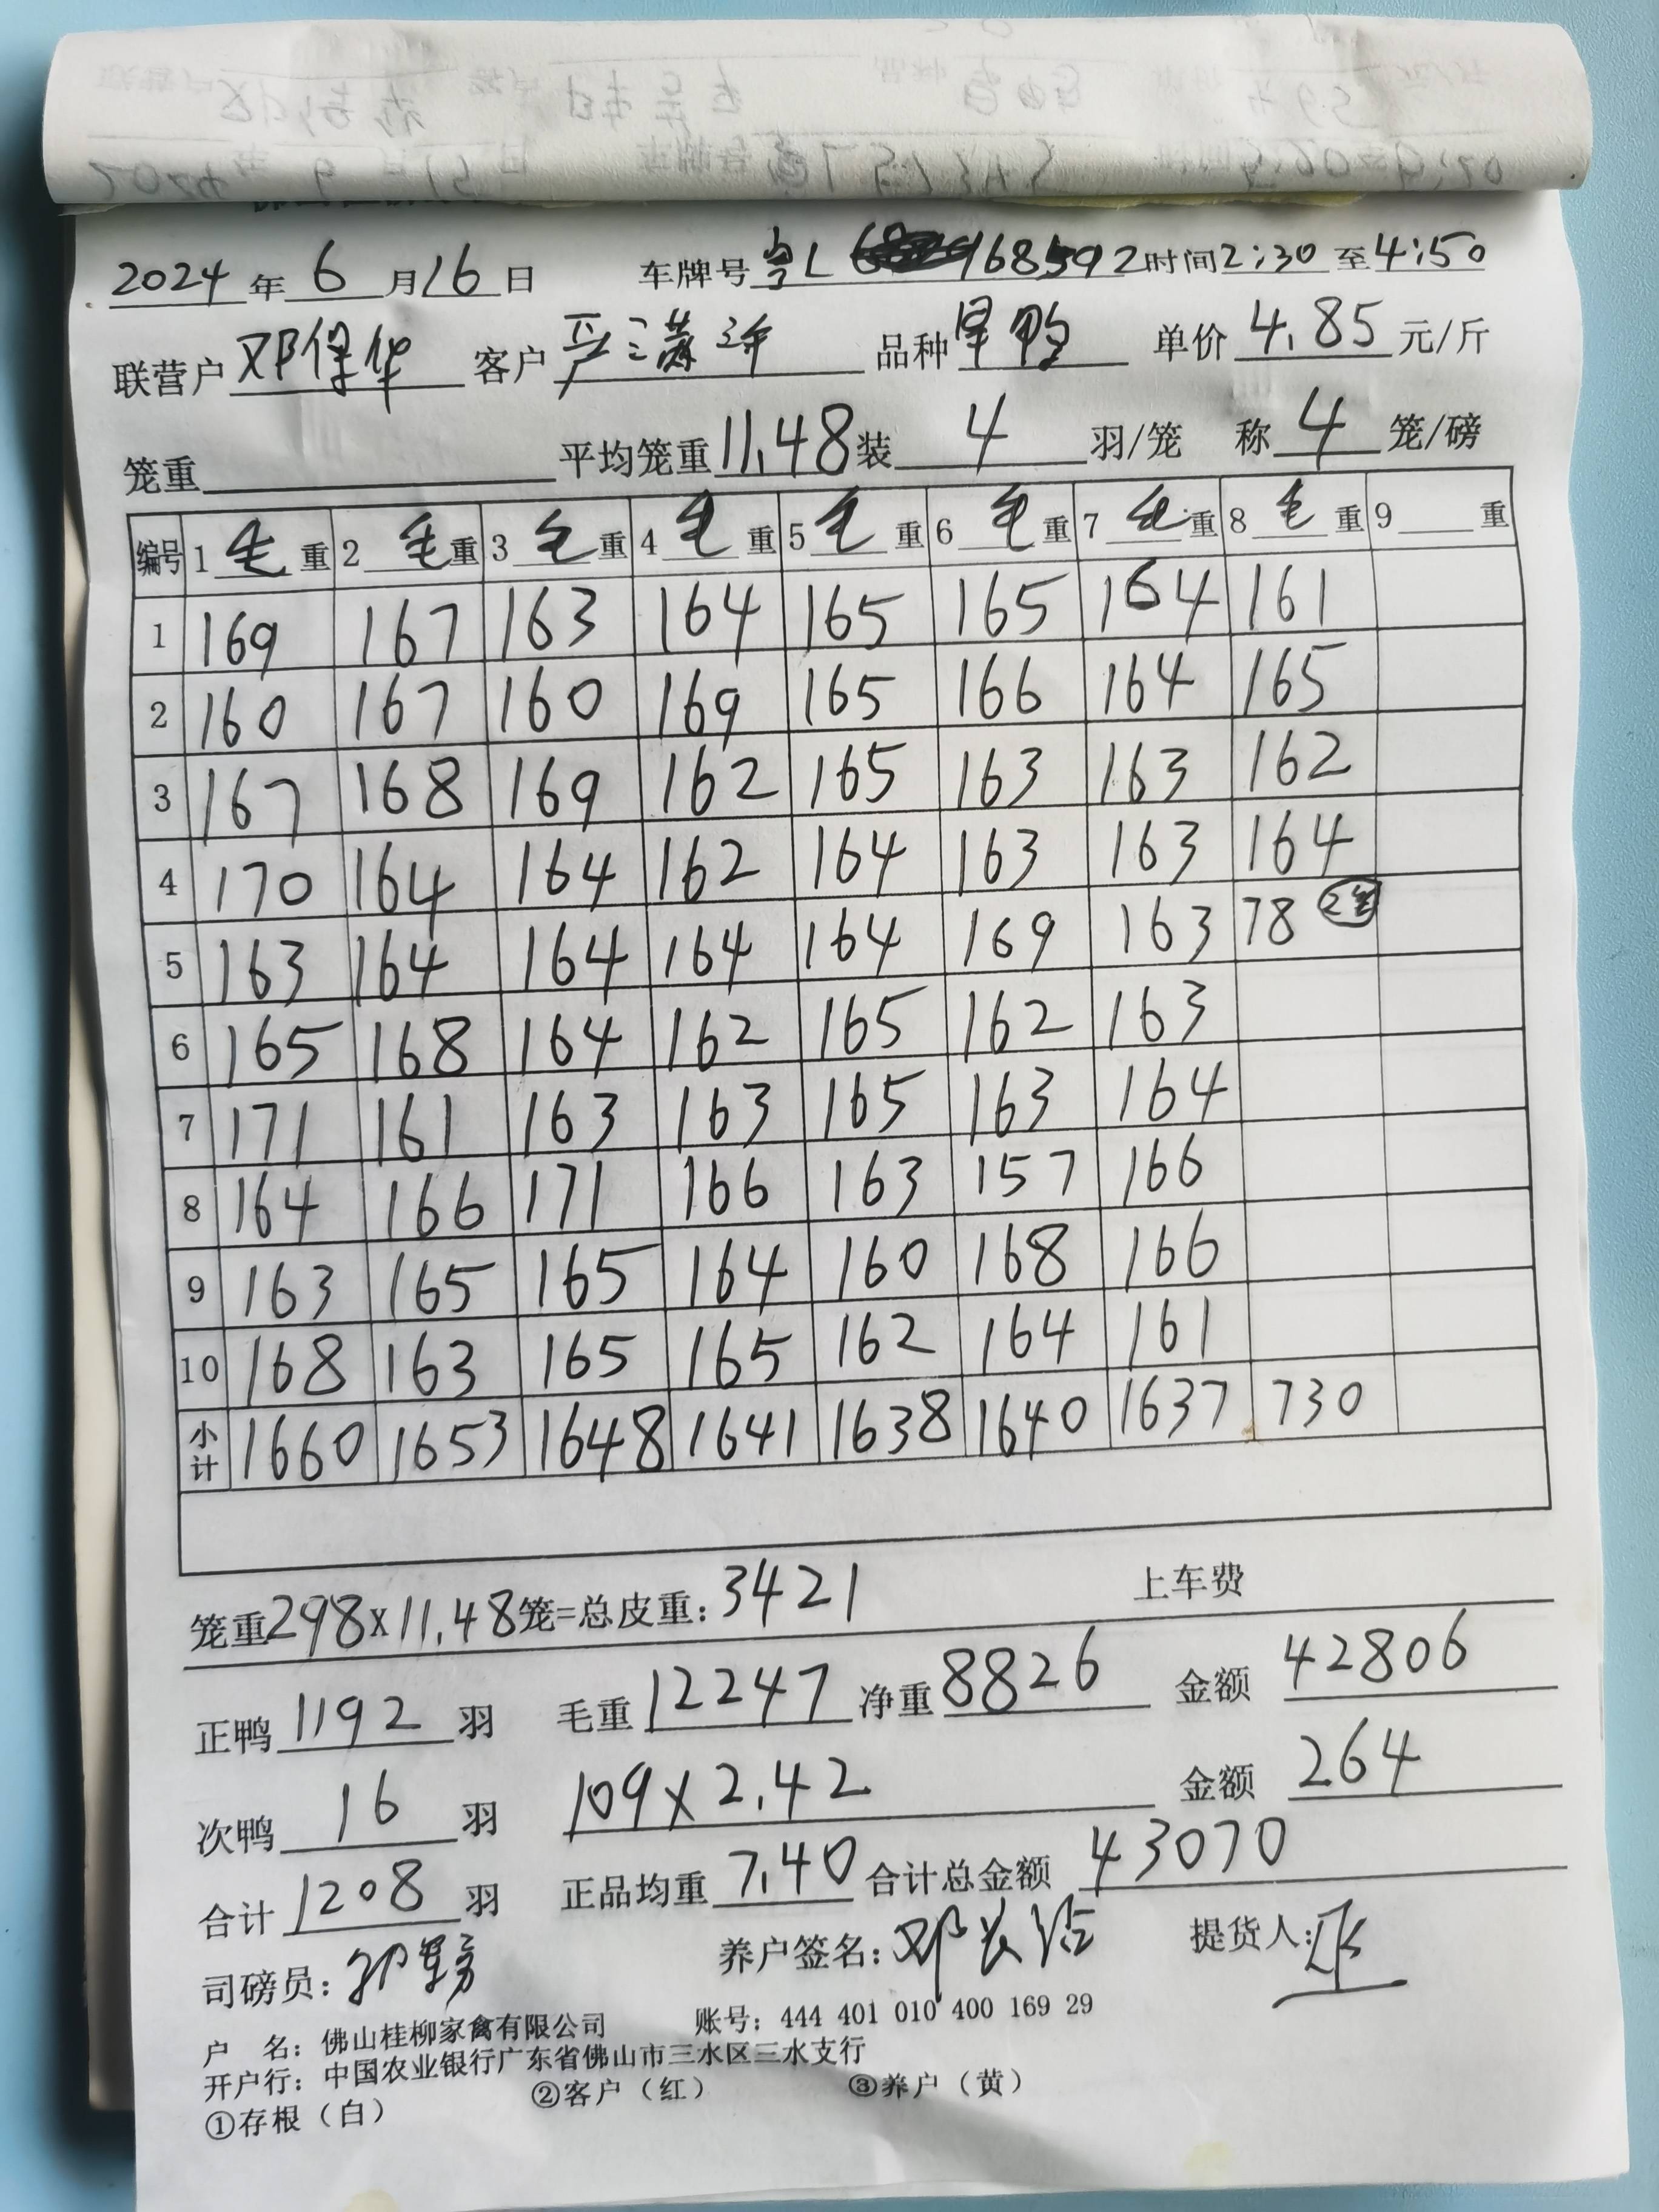 2024年6月16日 车牌号粤L 168592时间2:30至4:50
联营户邓保华 客户严三潇 品种旱鸭 单价4.85元/斤
笼重 平均笼重11.48装4羽/笼 称4笼/磅
编号 1毛重 2毛重 3毛重 4毛重 5毛重 6毛重 7毛重 8毛重 9重
1 169 167 163 164 165 165 164 161
2 160 167 160 169 165 166 164 165
3 167 168 169 162 165 163 163 162
4 170 164 164 162 164 163 163 164
5 163 164 164 164 164 169 163 78 2笼
6 165 168 164 162 165 162 163
7 171 161 163 163 165 163 164
8 164 166 171 166 163 157 166
9 163 165 165 164 160 168 166
10 168 163 165 165 162 164 161
小计 1660 1653 1648 1641 1638 1640 1637 730
笼重298×11.48笼=总皮重:3421 上车费
正鸭1192羽 毛重12247净重8826 金额42806
次鸭16羽 109×2.42 金额264
合计1208羽 正品均重7.40合计总金额43070
司磅员: 养户签名:邓 提货人:
户 名: 佛山桂柳家禽有限公司 账号: 444 401 010 400 169 29
开户行: 中国农业银行广东省佛山市三水区三水支行
①存根(白) ②客户(红) ③养户(黄)